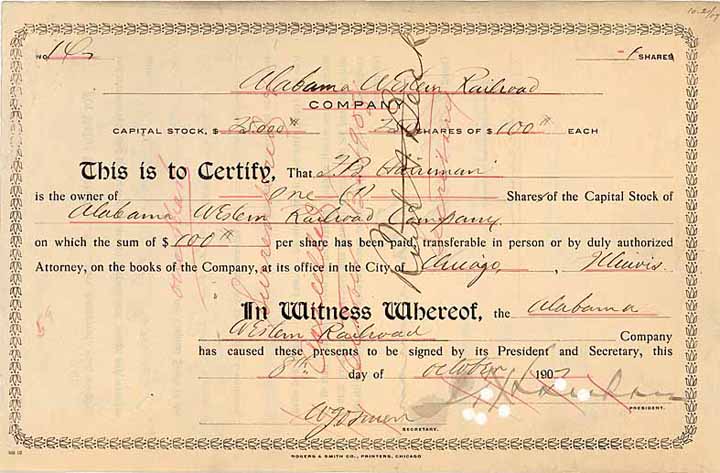 No. 16 1 SHARES
Alabama Western Railroad
COMPANY
CAPITAL STOCK, $ 25,000 00 250 SHARES OF $ 100 00 EACH
This is to Certify, That J. B. Harriman
is the owner of one (1) Shares of the Capital Stock of
Alabama Western Railroad Company
on which the sum of $ 100 00 per share has been paid, transferable in person or by duly authorized
Attorney, on the books of the Company, at its office in the City of Chicago, Illinois.
In Witness Whereof, the Alabama
Western Railroad Company
has caused these presents to be signed by its President and Secretary, this
8th day of October 190
PRESIDENT.
SECRETARY.
ROGERS & SMITH CO., PRINTERS, CHICAGO